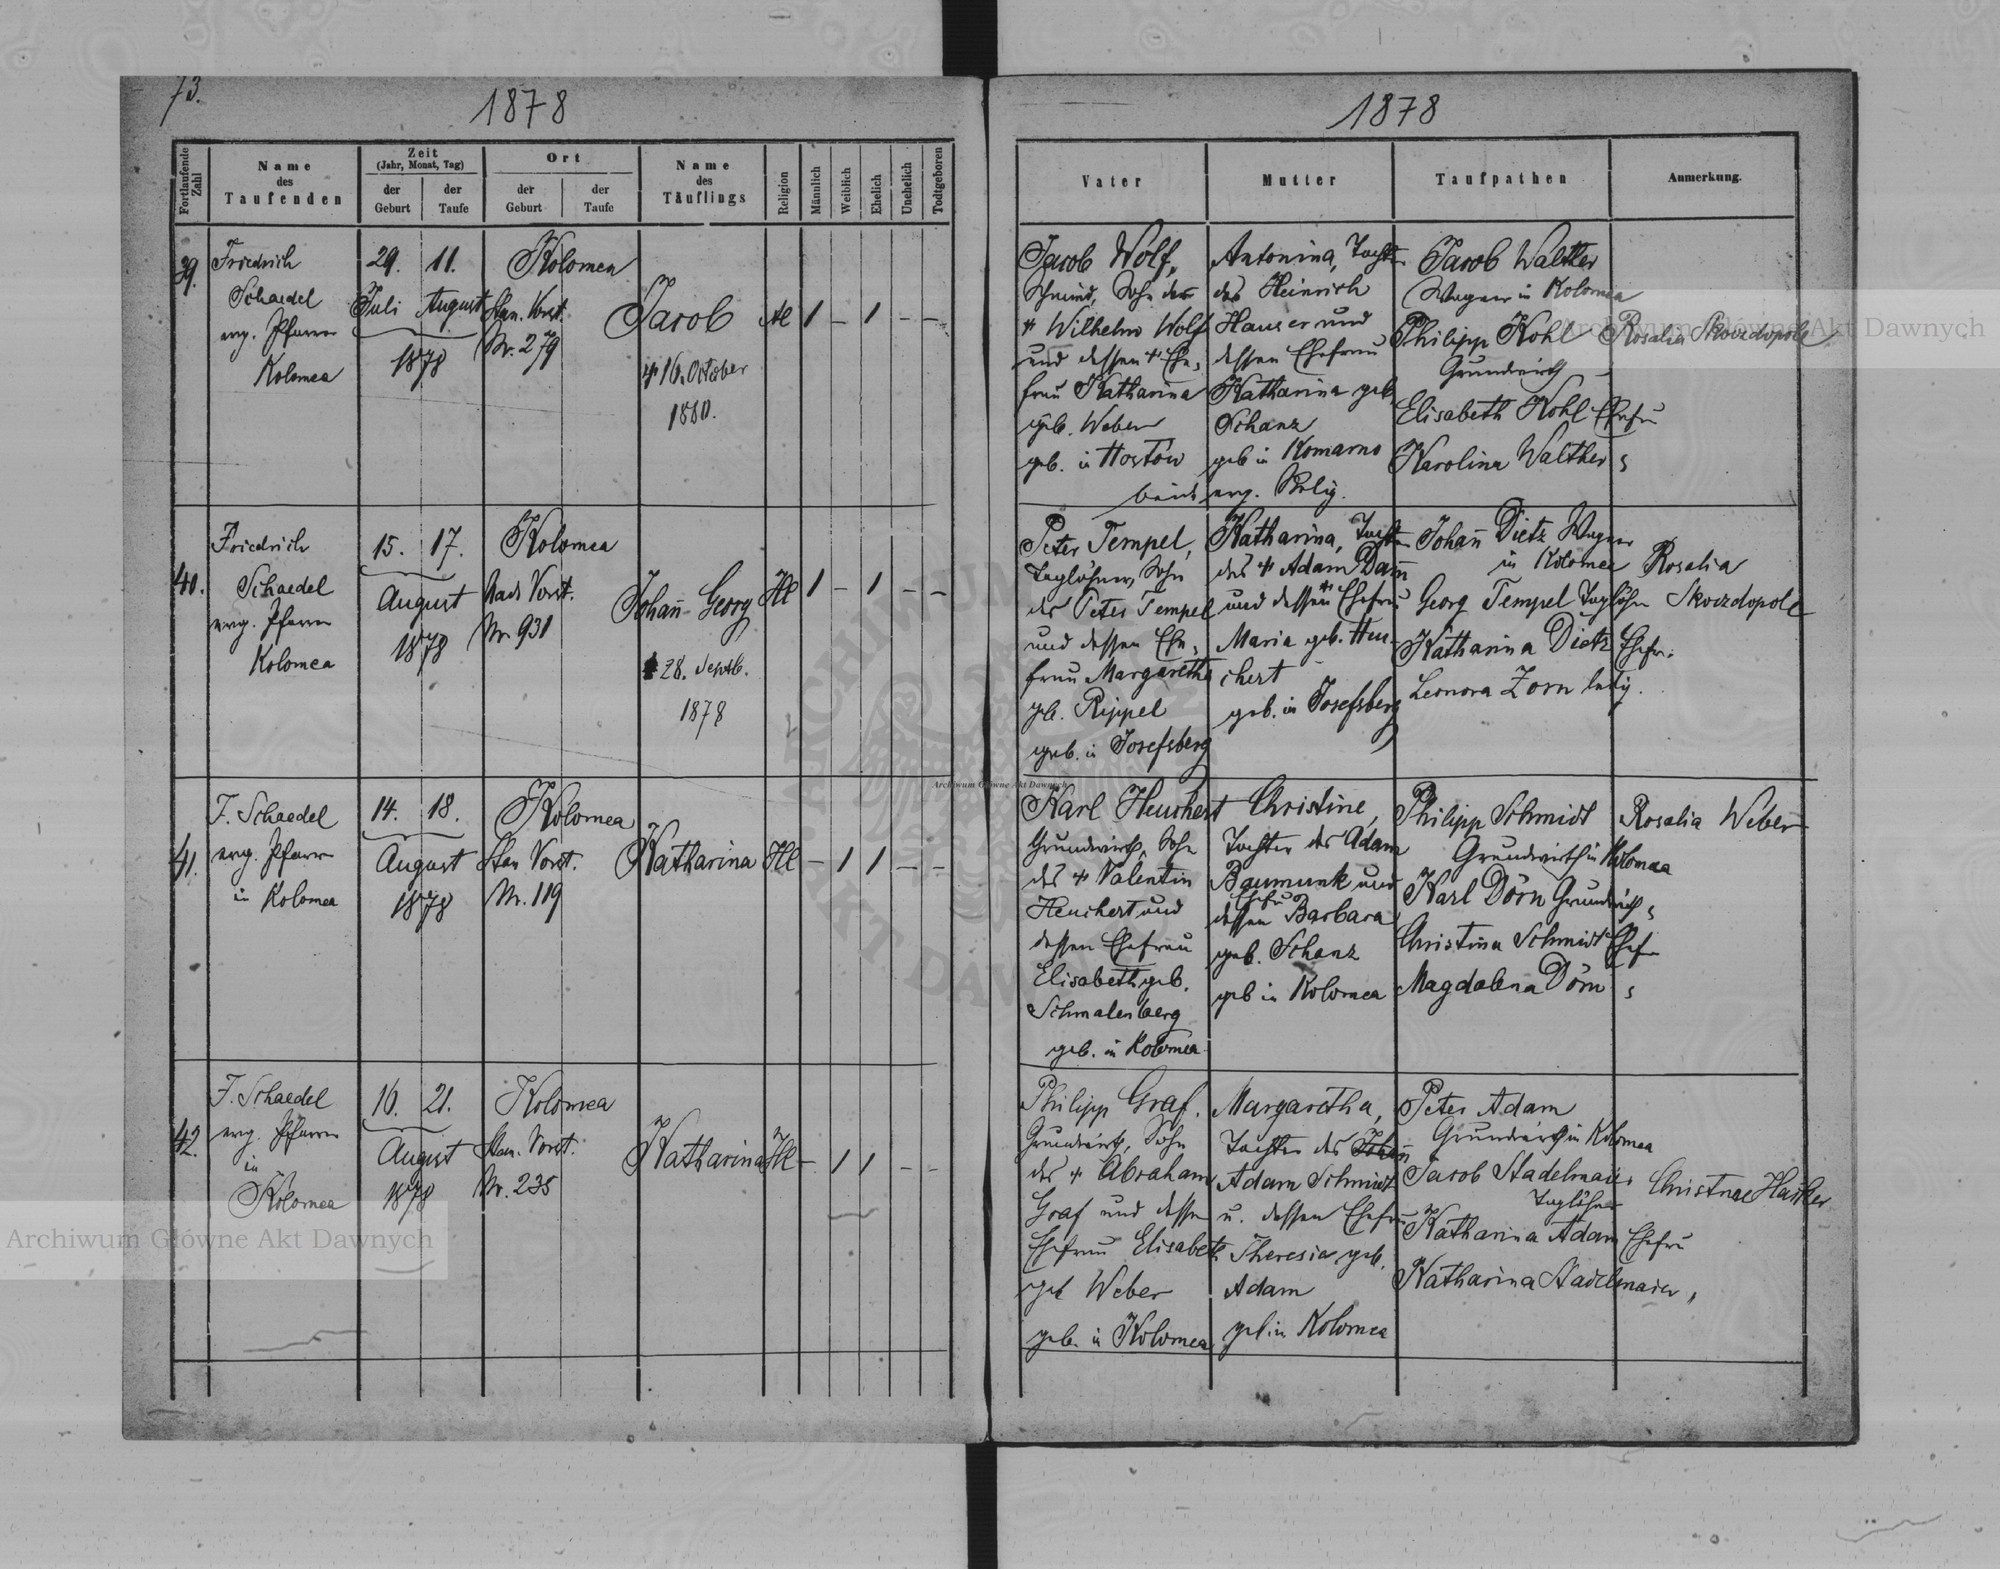 73.
1878
Fortlaufende Zahl
Name des Taufenden
Zeit
(Jahr, Monat, Tag)
der Geburt
der Taufe
Ort
der Geburt
der Taufe
Name des Täuflings
Religion
Männlich
Weiblich
Ehelich
Unehelich
Todtgeboren
39.
Friedrich
Schaedel
evg. Pfarrer
Kolomea
29. 11.
Juli August
1878
Kolomea
Stan. Vorst.
Nr. 279
Jacob
16. October
1880.
1 – 1 – –
40.
Friedrich
Schaedel
evg. Pfarrer
Kolomea
15. 17.
August
1878
Kolomea
Nadw. Vorst.
Nr 931
Johañ Georg
28. Septb.
1878
1 – 1 – –
41.
F. Schaedel
evg. Pfarrer
in Kolomea
14. 18.
August
1878
Kolomea
Stan Vorst.
Nr. 119
Katharina
– 1 1 – –
42.
F. Schaedel
evg. Pfarrer
in
Kolomea
16. 21.
August
1878
Kolomea
Stan. Vorst.
Nr. 235
Katharina
– 1 1 – –
1878
Vater
Mutter
Taufpathen
Anmerkung.
Jacob Wolf,
Schmied, Sohn des
Wilhelm Wolf
und dessen Ehe-
frau Katharina
geb. Weber
geb. in Hostow
Antonina, Tochter
des Heinrich
Hauser und
dessen Ehefrau
Katharina geb.
Schanz
geb in Komarno
beide evg. Relig.
Jacob Walther
Wagner in Kolomea
Philipp Kohl
Grundwirth
Elisabeth Kohl Ehefru
Karolina Walther "
Rosalia Skovzdopole
Peter Tempel,
Taglöhner, Sohn
des Peter Tempel
und dessen Ehe-
frau Margaretha
geb. Rippel
geb. in Josefsberg
Katharina, Tochter
des Adam Dam̃
und dessen Ehefru
Maria geb. Heu-
chert
geb. in Josefsberg
Johañ Dietz Wagner
in Kolomea
Georg Tempel Taglöhn
Katharina Dietz Ehefr.
Leonora Zorn ledig.
Rosalia
Skovzdopole
Karl Heuchert
Grundwirth, Sohn
des Valentin
Heuchert und
dessen Ehefrau
Elisabeth geb.
Schmalenberg
geb. in Kolomea
Christine,
Tochter des Adam
Baumunk und
Ehefru
dessen Barbara
geb. Schanz
geb in Kolomea
Philipp Schmidt
Grundwirth in Kolomea
Karl Dörn Grundwirth
Christina Schmidt Ehef
Magdalena Dörn "
Rosalia Weber
Philipp Graf,
Grundwirth, Sohn
des Abraham
Graf und dessen
Ehefrau Elisabeth
geb Weber
geb. in Kolomea
Margaretha,
Tochter des Johañ
Adam Schmidt
u. dessen Ehefru
Theresia geb.
Adam
geb in Kolomea
Peter Adam
Grundwirth in Kolomea
Jacob Stadelmaier
Taglöhner
Katharina Adam Ehefru
Katharina Stadelmaier "
Archiwum Główne Akt Dawnych
Archiwum Główne Akt Dawnych
Archiwum Główne Akt Dawnych